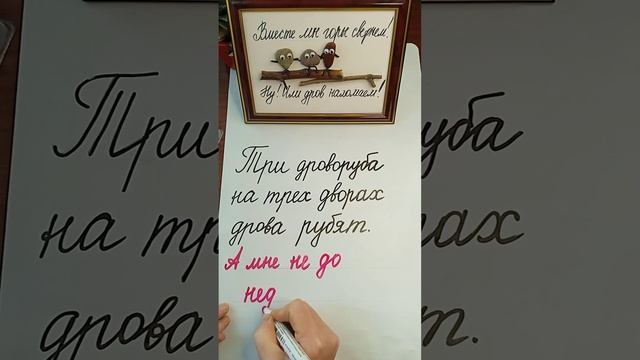 Вместе мы горы свернем!
Ну! Или дров наломаем!
Три дроворуба
на трех дворах
дрова рубят.
А мне не до
нед